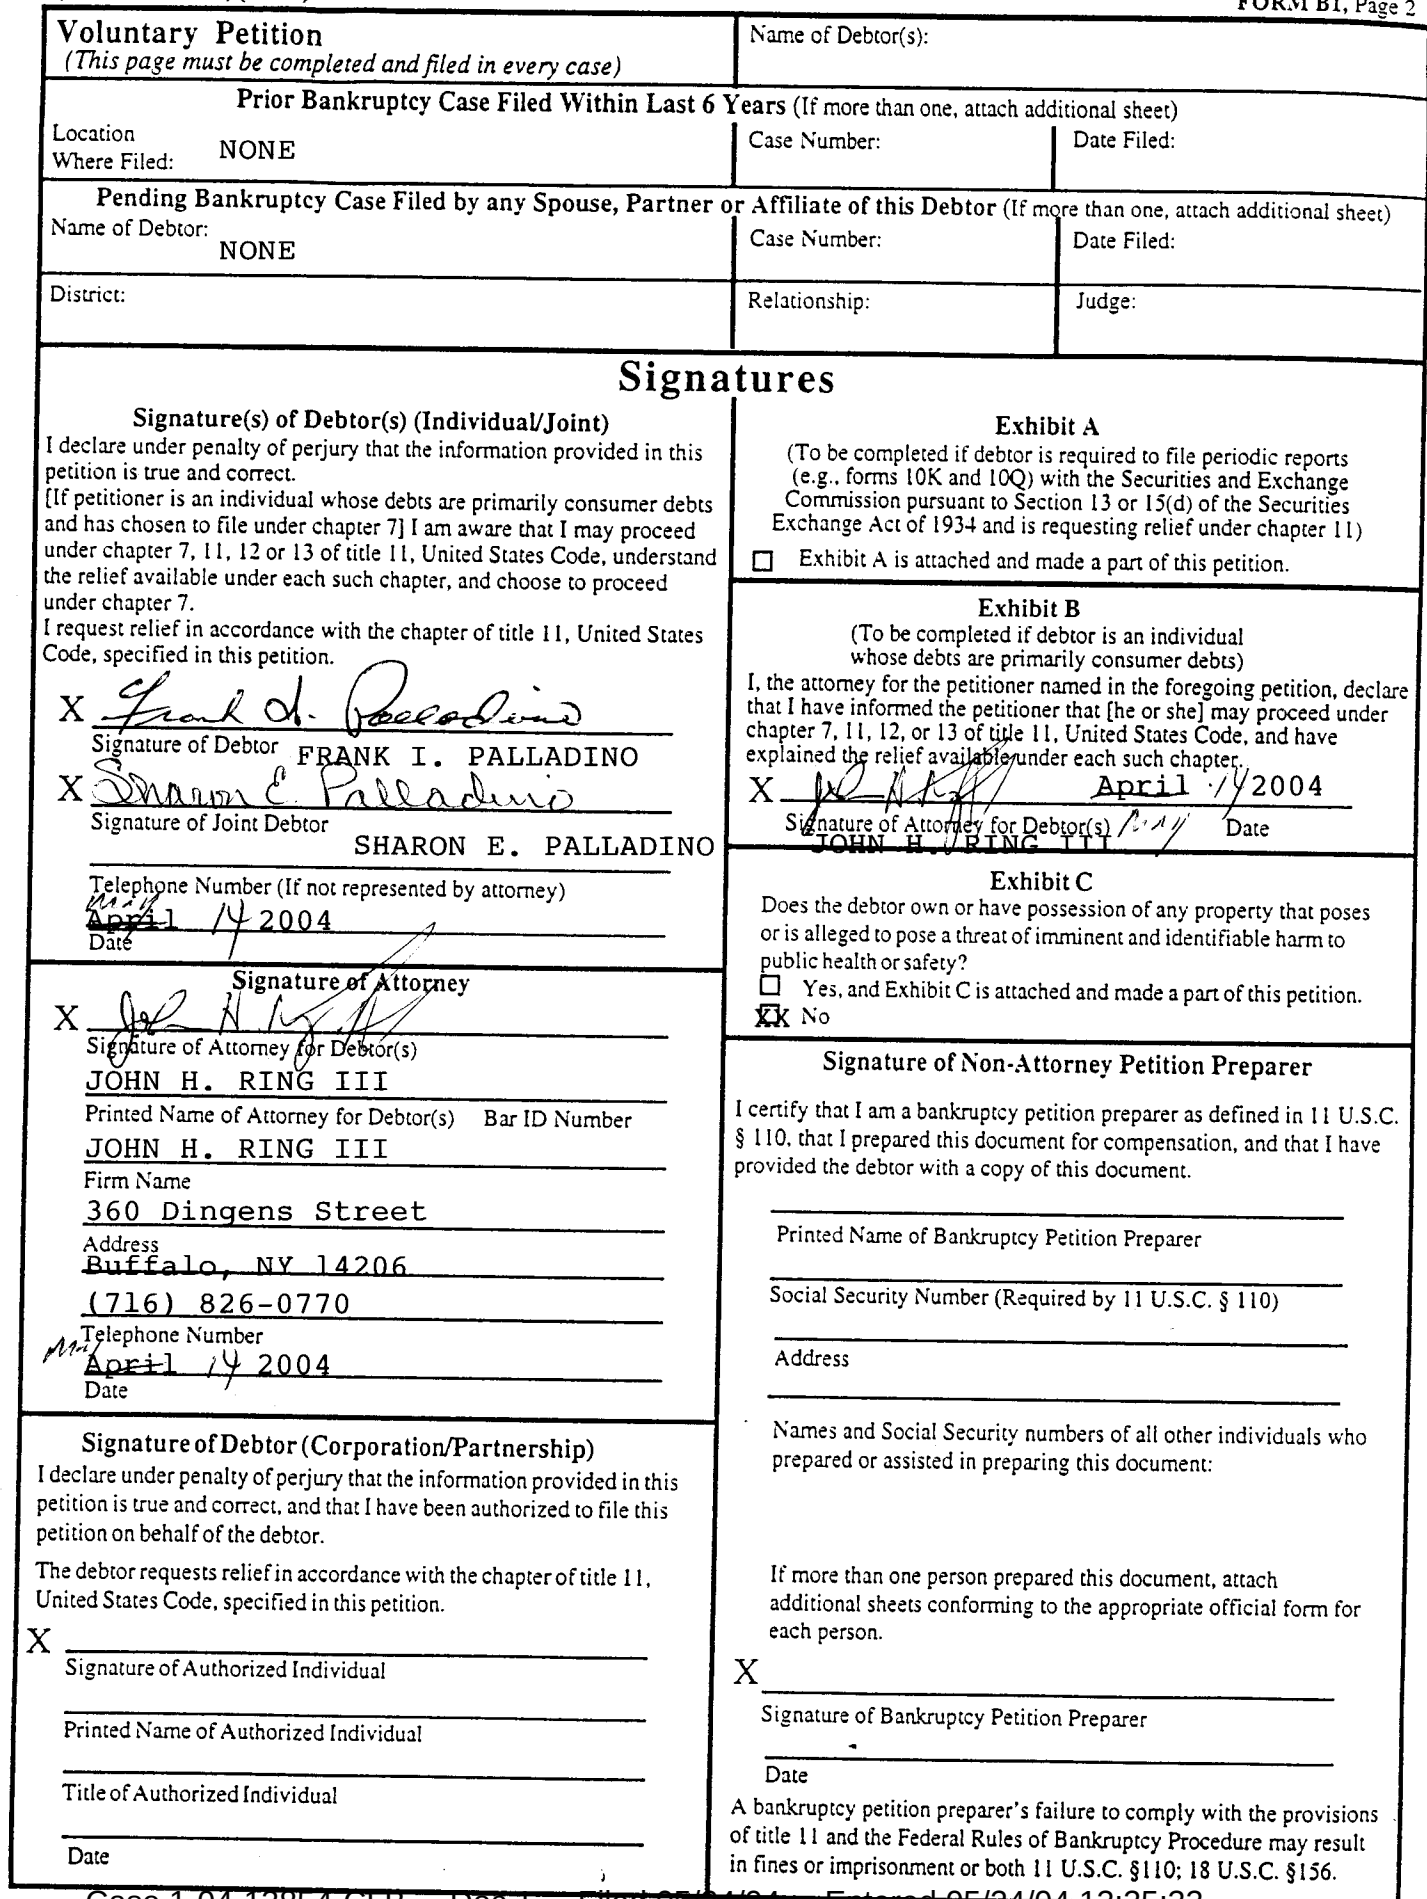 FORM B1, Page 2
Voluntary Petition
(This page must be completed and filed in every case)
Name of Debtor(s):
Prior Bankruptcy Case Filed Within Last 6 Years (If more than one, attach additional sheet)
Location
Where Filed: NONE
Case Number:
Date Filed:
Pending Bankruptcy Case Filed by any Spouse, Partner or Affiliate of this Debtor (If more than one, attach additional sheet)
Name of Debtor:
NONE
Case Number:
Date Filed:
District:
Relationship:
Judge:
Signatures
Signature(s) of Debtor(s) (Individual/Joint)
I declare under penalty of perjury that the information provided in this
petition is true and correct.
[If petitioner is an individual whose debts are primarily consumer debts
and has chosen to file under chapter 7] I am aware that I may proceed
under chapter 7, 11, 12 or 13 of title 11, United States Code, understand
the relief available under each such chapter, and choose to proceed
under chapter 7.
I request relief in accordance with the chapter of title 11, United States
Code, specified in this petition.
X Frank I. Palladino
Signature of Debtor FRANK I. PALLADINO
X Sharon E. Palladino
Signature of Joint Debtor
SHARON E. PALLADINO
Telephone Number (If not represented by attorney)
May
April 14 2004
Date
Signature of Attorney
X John H. Ring III
Signature of Attorney for Debtor(s)
JOHN H. RING III
Printed Name of Attorney for Debtor(s) Bar ID Number
JOHN H. RING III
Firm Name
360 Dingens Street
Address
Buffalo, NY 14206
(716) 826-0770
Telephone Number
May
April 14 2004
Date
Signature of Debtor (Corporation/Partnership)
I declare under penalty of perjury that the information provided in this
petition is true and correct, and that I have been authorized to file this
petition on behalf of the debtor.
The debtor requests relief in accordance with the chapter of title 11,
United States Code, specified in this petition.
X
Signature of Authorized Individual
Printed Name of Authorized Individual
Title of Authorized Individual
Date
Exhibit A
(To be completed if debtor is required to file periodic reports
(e.g., forms 10K and 10Q) with the Securities and Exchange
Commission pursuant to Section 13 or 15(d) of the Securities
Exchange Act of 1934 and is requesting relief under chapter 11)
Exhibit A is attached and made a part of this petition.
Exhibit B
(To be completed if debtor is an individual
whose debts are primarily consumer debts)
I, the attorney for the petitioner named in the foregoing petition, declare
that I have informed the petitioner that [he or she] may proceed under
chapter 7, 11, 12, or 13 of title 11, United States Code, and have
explained the relief available under each such chapter.
X John H. Ring April 14 2004
Signature of Attorney for Debtor(s) May Date
JOHN H. RING III
Exhibit C
Does the debtor own or have possession of any property that poses
or is alleged to pose a threat of imminent and identifiable harm to
public health or safety?
Yes, and Exhibit C is attached and made a part of this petition.
XX No
Signature of Non-Attorney Petition Preparer
I certify that I am a bankruptcy petition preparer as defined in 11 U.S.C.
§ 110, that I prepared this document for compensation, and that I have
provided the debtor with a copy of this document.
Printed Name of Bankruptcy Petition Preparer
Social Security Number (Required by 11 U.S.C. § 110)
Address
Names and Social Security numbers of all other individuals who
prepared or assisted in preparing this document:
If more than one person prepared this document, attach
additional sheets conforming to the appropriate official form for
each person.
X
Signature of Bankruptcy Petition Preparer
Date
A bankruptcy petition preparer's failure to comply with the provisions
of title 11 and the Federal Rules of Bankruptcy Procedure may result
in fines or imprisonment or both 11 U.S.C. §110; 18 U.S.C. §156.